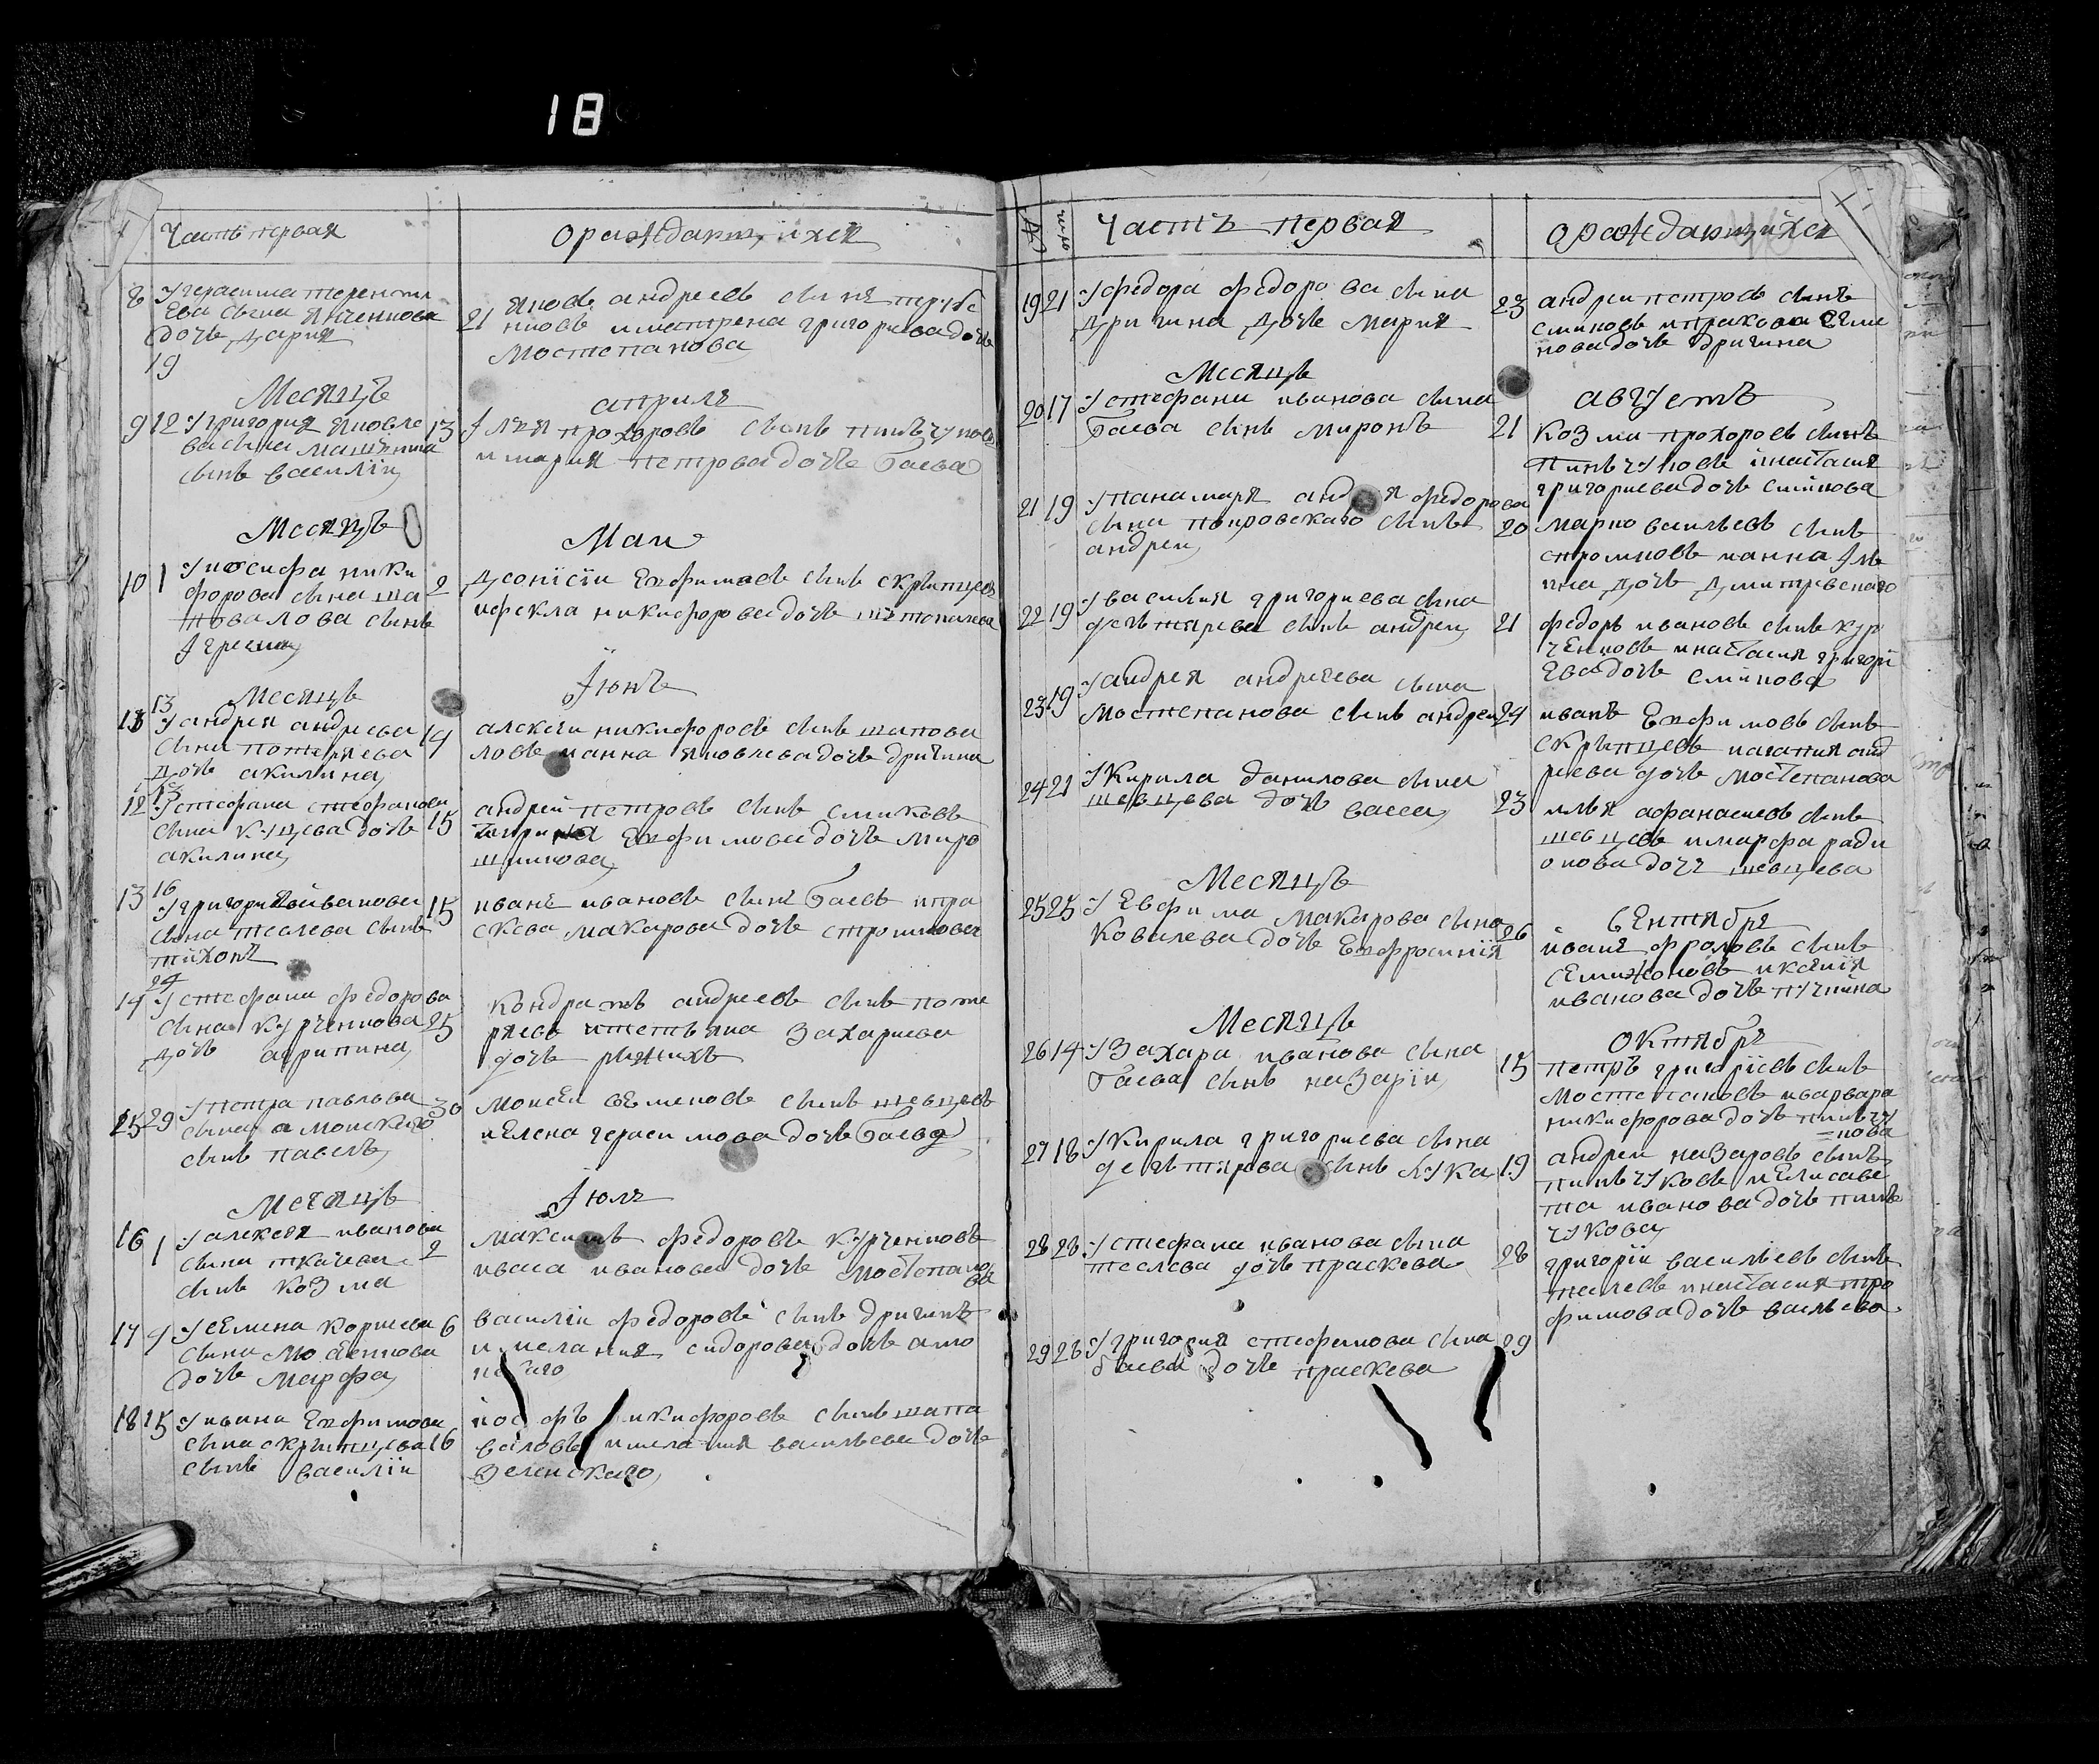 18
Часть первая
ораждающихся
8 У герасима теренти
ева сына
дочь дария
19
21 яковъ андреевъ сынъ трубе
никовъ иматрена григорьева дочь
Мостепанова
Месяцъ
априля
9 12 У григория яковле
ва сына
сынъ василiи
13 Iлья прохоровъ сынъ пинчуковъ
имария петрова дочь баева
Месяцъ
Маи
10 1 У иосифа ники
форова сына ша
повалова сынъ
2 Дeонiсiи Еуфимовъ сынъ скрыпцевъ
ифекла никифорова дочь
Месяцъ
Iюнъ
13
11 У андрея андреева
сына потеряева
дочь акилина
14 алексеи никифоровъ сынъ шапова
ловъ ианна яковлева дочь дригина
13
12 У стефана стефанова
сына купцева дочь
акилина
15 андрей петровъ сынъ сликовъ
Еуфимова дочь миро
шникова
16
13 У григория иванова
сына теслева сынъ
тихонъ
15 иванъ ивановъ сынъ баевъ ипра
скева макарова дочь стропикова
24
14 У стефана федорова
сына курченкова
дочь агрипина
25 кондратъ андреевъ сынъ поте
ряевъ итетьяна захариева
дочь рыжихъ
15 29 У петра павлова
сына амонскаго
сынъ павелъ
30 моисеи семеновъ сынъ шевцевъ
иелена герасимова дочь баева
Месяцъ
Iюля
16 1 У алексея иванова
сына ткачева
сынъ козма
2 максимъ федоровъ курченковъ
иваса иванова дочь мостепано
ва
17 4 У семена корнеева
сына
дочь марфа
6 василiи федоровъ сынъ дригинъ
имелания сидорова дочь амо
18 15 У ивана Еуфимова
сына скрыпцева
сынъ василiи
16 никифоровъ сынъ шапо
валовъ имелания васильева дочь
зеленскаго
№
число
Часть первая
ораждающихся
19 21 У федора федорова сына
дригина дочь мария
23 андреи петровъ сынъ
сликовъ ипраковя семе
нова дочь дригина
Месяцъ
августъ
20 17 У стефана иванова сына
баева сынъ миронъ
21 козма прохоровъ сынъ
пинчуковъ инастасия
григориева дочь сликова
21 19 У панамаря андрея федорова
сына покровскаго сынъ
андреи
20 марко васильевъ сынъ
ианна Iль
ина дочь димитревскаго
22 19 У василия григориева сына
дегтярева сынъ андреи
21 федоръ ивановъ сынъ кур
ченковъ инастасия григорi
ева дочь сликова
23 19 У андрея андреева сына
Мостепанова сынъ андреи
24 иванъ Еуфимовъ сынъ
скрыпцевъ иагапия анд
реева дочь мостепанова
24 21 У Кирила данилова сына
шевцева дочь васса
23 илья афанасиевъ сынъ
шевцевъ имарфа ради
онова дочь шевцева
Месяцъ
сентября
25 25 У Евфима макарова сына
Ковалева дочь Еуфросинiя
26 иванъ фроловъ сынъ
иксенiя
иванова дочь
Месяцъ
октября
26 14 У Захара иванова сына
баева сынъ назарiи
15 петръ григорiевъ сынъ
мостепановъ иварвара
никифорова дочь пинчу
=кова
27 18 У Кирила григориева сына
дегтярева сынъ лука
19 андреи назаровъ сынъ
пинчуковъ иелисаве
та иванова дочь пин
чукова
28 28 У стефана иванова сына
теслева дочь праскева
28 григорiи васильевъ сынъ
теслевъ инастасия тро
фимова дочь васильева
29 28 У григория стефанова сына
баева дочь праскева
29